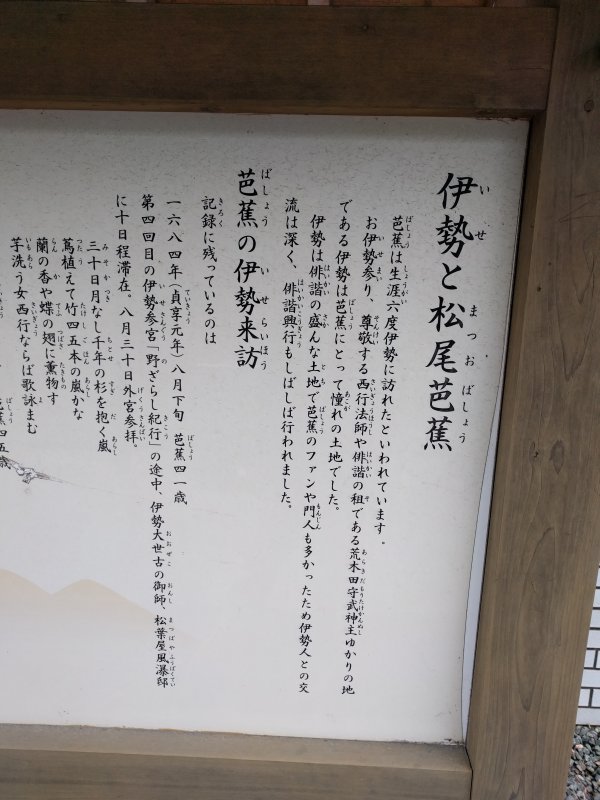 伊勢と松尾芭蕉
芭蕉は生涯六度伊勢に訪れたといわれています。
お伊勢参り、尊敬する西行法師や俳諧の祖である荒木田守武神主ゆかりの地
である伊勢は芭蕉にとって憧れの土地でした。
伊勢は俳諧の盛んな土地で芭蕉のファンや門人も多かったため伊勢人との交
流は深く、俳諧興行もしばしば行われました。
芭蕉の伊勢来訪
記録に残っているのは
一六八四年（貞享元年）八月下旬 芭蕉四一歳
第四回目の伊勢参宮「野ざらし紀行」の途中、伊勢大世古の御師、松葉屋風瀑邸
に十日程滞在。八月三十日外宮参拝。
三十日月なし千年の杉を抱く嵐
蔦植えて竹四五本の嵐かな
蘭の香や蝶の翅に薫物す
芋洗う女西行ならば歌詠まむ
芭蕉四五歳